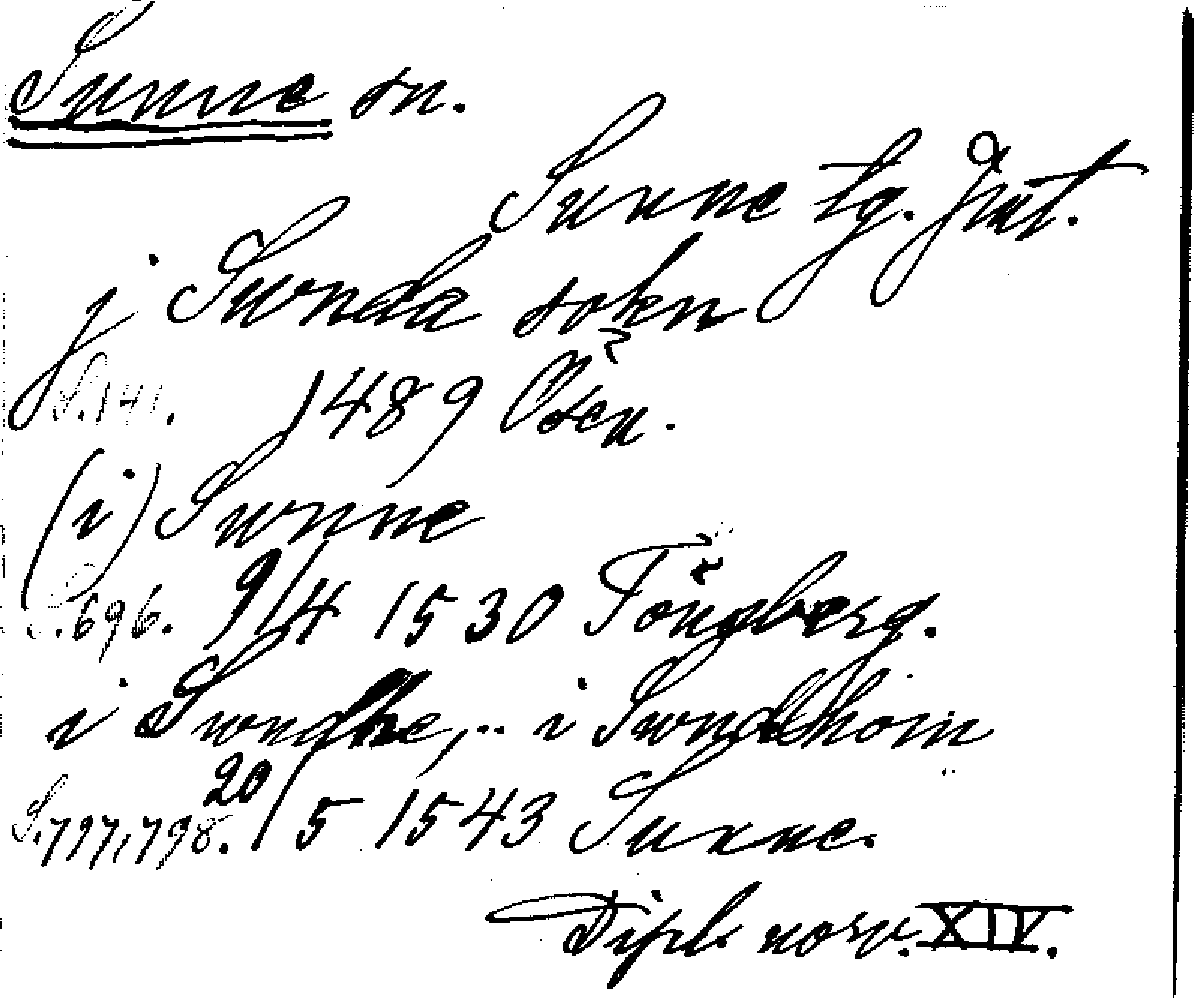 Sunne sn.
Sunne tg. Jmt.
j Swnda sokn
S. 141. 1489 Osen.
(i) Swnne
S. 696. 9/4 1530 Tönsberg.
i Swndhe,.. i Swndhom
S. 797, 798. 20/5 1543 Sunne.
Dipl. norv. XIV.